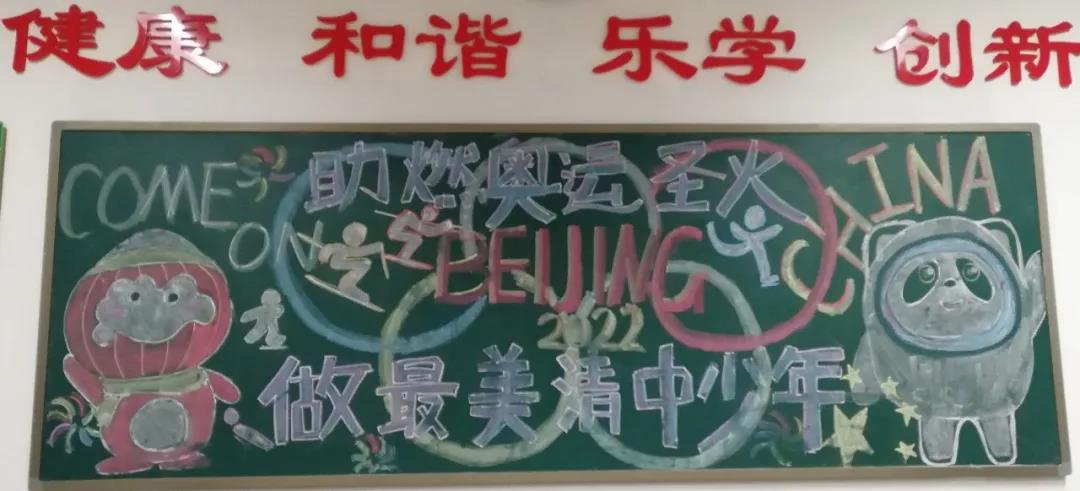 健康 和谐 乐学 创新
COME ON
助燃奥运圣火
CHINA
BEIJING
2022
做最美清中少年